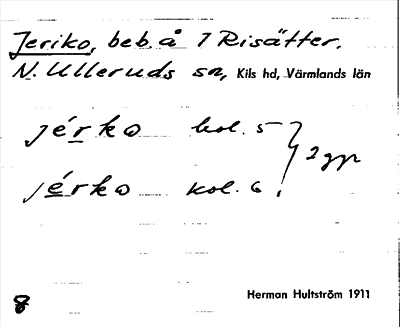 Jeriko, beb. å 1 Risätter.
N. Ulleruds sn, Kils hd, Värmlands län
jérko kol. 5
jérko kol. 6 } 2 ggr
Herman Hultström 1911
8